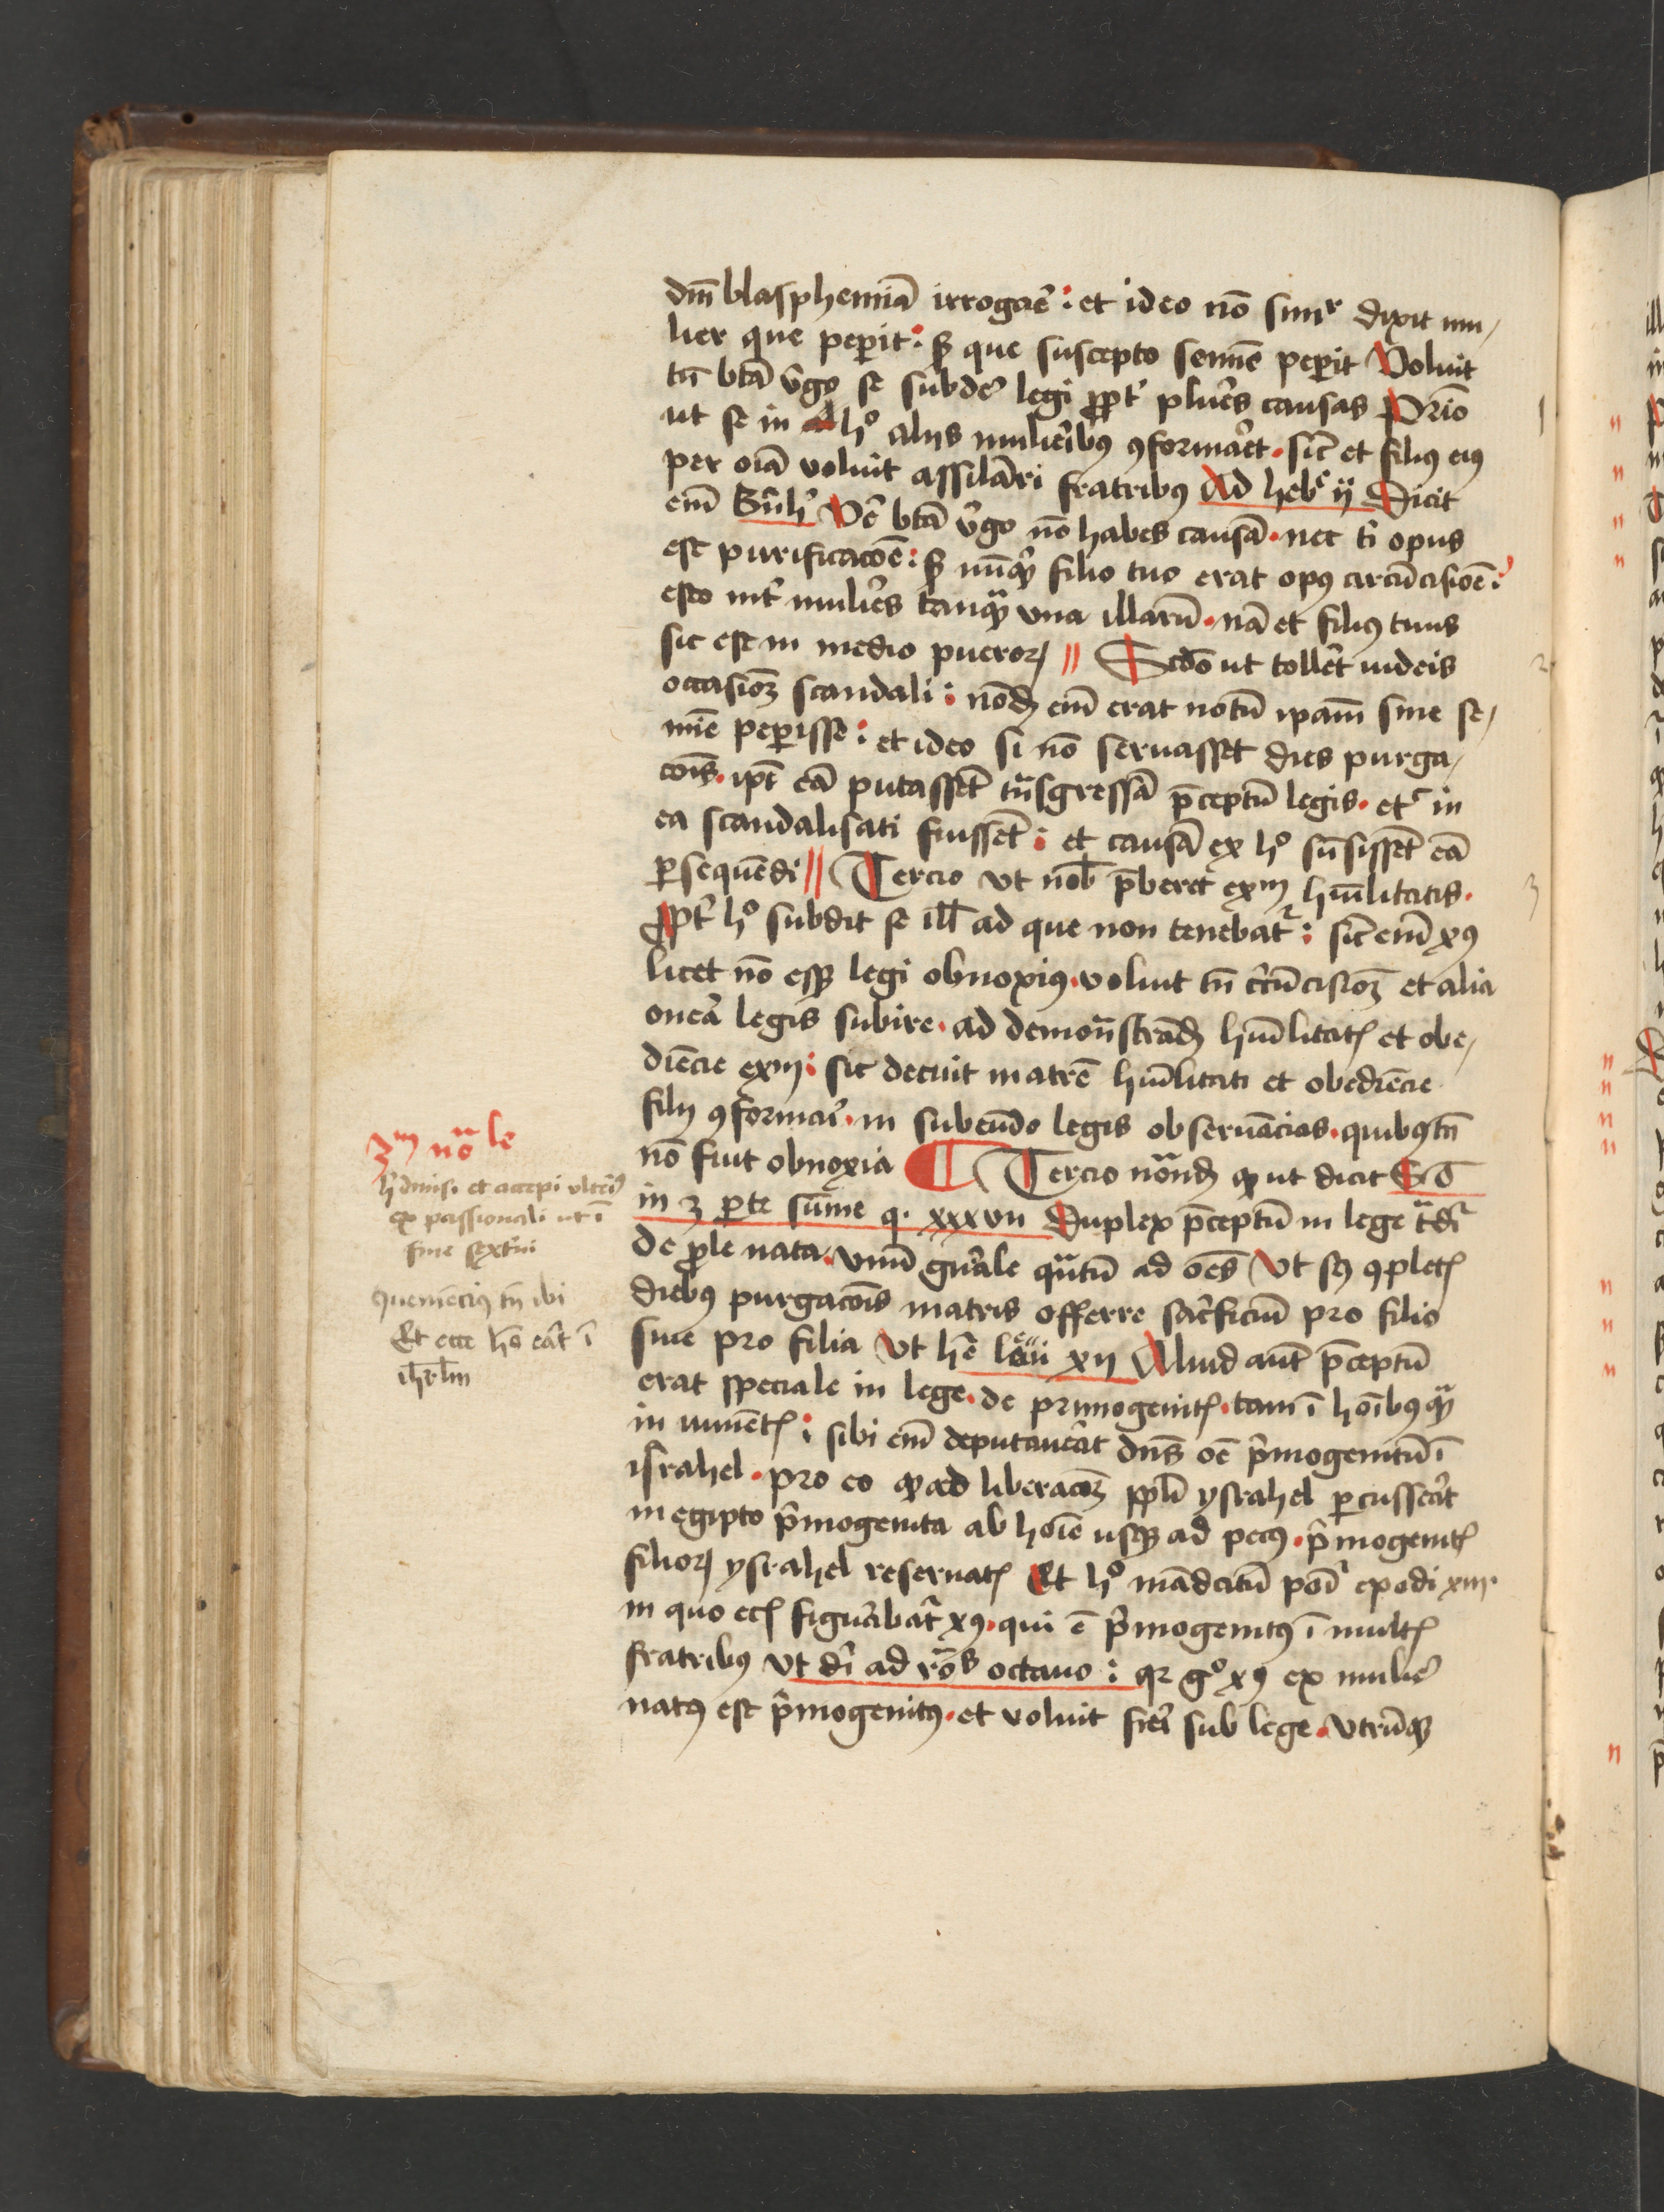 dm̄ blasphemiā irrogar̄e : et ideo nō simr dixit mu/
lier que peperit : sꝫ que suscepto semīe peperit Voluit
tn̄ btā v̄go se subder̄e legi ꝓpt' plures causas Primo
ut se in hº aliis mulieribꝰ ꝯformaret · sic et filiꝰ eiꝰ
per oīa voluit assilari fratribꝰ Ad hebr ij Dicit
em̄ Bern̄h Vere btā v̄go nō habes causā · nec t' opus
est purificacōe : sꝫ nūqͥd filio tuo erat opꝰ circūcisiōe :
esto int' mulieres tanqͣꝫ vna illarū · nā et filiꝰ tuus
sic est in medio pueroꝝ // Scdō ut tolleret iudeis
occasionē scandali : nōdū em̄ erat notū ipam sine se/
mīe peperisse : et ideo si nō seruasset dies purga/
cōis · ipī eā putassēt tn̄sgressā p̄ceptū legis · et in
ea scandalisati fuissēt : et causā ex hº sūpsissēt eā
ꝑsequēdi // Tercio vt nob̄ p̄beret exm humilitatis ·
ꝓpt' hº subdit se ill̄ ad que non tenebatr : sic em̄ xꝰ
licet nō essꝫ legi obnoxiꝰ · voluit tn̄ circūcisionē et alia
onera legis subire · ad demonstrādū humilitatꝭ et obe/
diēcie exm : sic decuit matrē humilitati et obediēcie
filii ꝯformari · in subeundo legis obseruācias · quibꝰ tn̄
nō fuit obnoxia ¶ Tercio nōandū ꝙ ut dicit S Tho
in 3 parte sūme q · xxxvii Duplex p̄ceptū in lege trādir
de ꝓle nata · vnū gn̄ale quātū ad oēs Vt scꝫ ꝯpletꝭ
diebꝰ purgacōis matris offerre sacrificiū pro filio
siue pro filia Vt hr̄ leui xii Aliud aūt p̄ceptū
erat speciale in lege · de primogenitꝭ · tam ī hoībꝰ qͣꝫ
in iumētꝭ : sibi em̄ deputauerat dn̄s oē p̄mogenitū ī
israhel · pro eo ꝙ ad liberacōꝫ ppli ysrahel percusserat
in egipto p̄mogenita ab hoīe usqꝫ ad pecꝰ · p̄mogenitꝭ
filioꝝ ysrahel reseruatꝭ Et hº mādatū ponir exodi xiii ·
in quo ecꝭ figurabatr xꝰ · qui ē p̄mogenitꝰ ī multꝭ
fratribꝰ Vt dr̄ ad rōs octauo : qr gº xꝰ ex muliere
natꝰ est p̄mogenitꝰ · et voluit fieri sub lege · vtrūqꝫ
1
2
3
3m nōale
h' dimisi et accepi vlteriꝰ
ex passionali ut ī
fine sexterni
ꝯueniēciꝰ tn̄ ibi
Et ecce hō erat ī
ihrlm